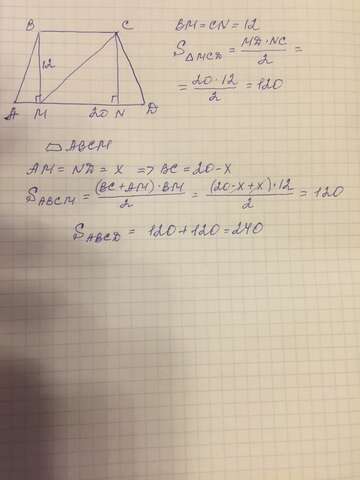 B C
12
A M 20 N D
BM = CN = 12
S△MCD = MD · NC / 2 =
= 20 · 12 / 2 = 120
⏢ ABCM
AM = ND = x => BC = 20 - x
SABCM = (BC + AM) · BM / 2 = (20 - x + x) · 12 / 2 = 120
SABCD = 120 + 120 = 240